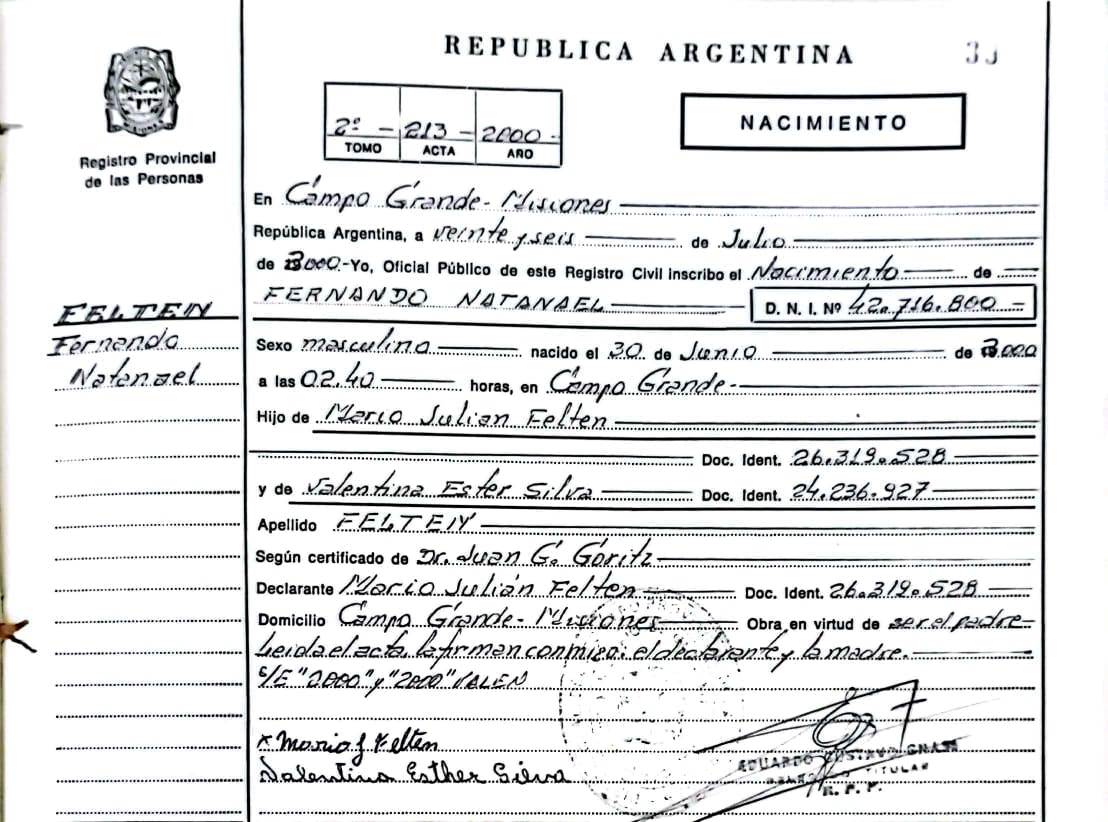 REPUBLICA ARGENTINA
Registro Provincial
de las Personas
2º - 213 - 2000 -
TOMO ACTA AÑO
NACIMIENTO
En Campo Grande - Misiones
República Argentina, a veinte y seis de Julio
de 2000.-Yo, Oficial Público de este Registro Civil inscribo el Nacimiento de
FERNANDO NATANAEL D. N. I. Nº 42.716.800 -
FELTEN
Fernando
Natanael
Sexo masculino nacido el 30 de Junio de 2000
a las 02.40 horas, en Campo Grande -
Hijo de Mario Julian Felten
Doc. Ident. 26.319.528
y de Valentina Ester Silva Doc. Ident. 24.236.927
Apellido FELTEN
Según certificado de Dr. Juan G. Goritz
Declarante Mario Julián Felten Doc. Ident. 26.319.528
Domicilio Campo Grande - Misiones Obra en virtud de ser el padre
Leida el acta, la firman conmigo: el declarante y la madre.
S/E "2000" y "2000" VALEN
x Mario J Felten
Valentina Esther Silva
EDUARDO GUSTAVO
TITULAR
R. P. P.